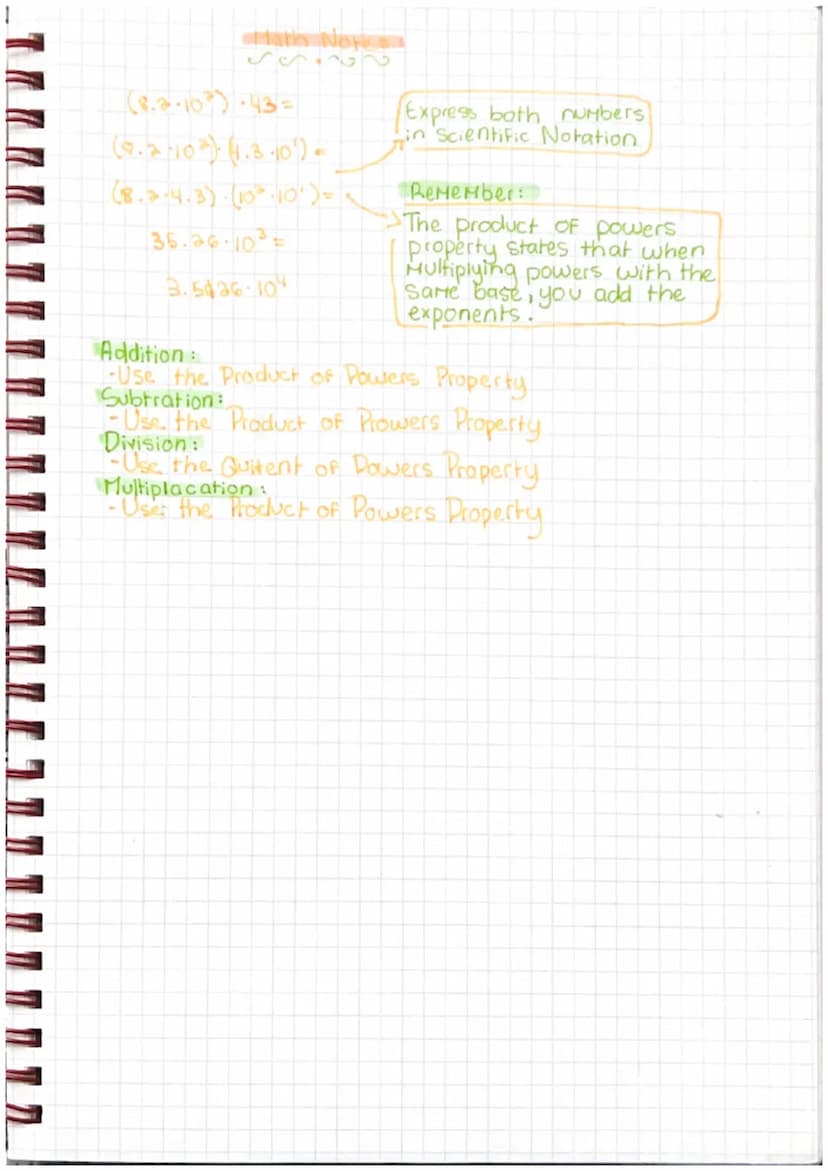 Math Notes
(8.2·10²)·43=
(8.2·10²)·(4.3·10¹)=
(8.2·4.3)·(10²·10¹)=
35.26·10³=
3.5426·10⁴
Express both numbers
in Scientific Notation
Remember:
The product of powers
property states that when
multiplying powers with the
same base, you add the
exponents.
Addition:
-Use the Product of Powers Property
Subtration:
-Use the Product of Prowers Property
Division:
-Use the Quitent of Powers Property
Multiplacation:
-Use: the Product of Powers Property